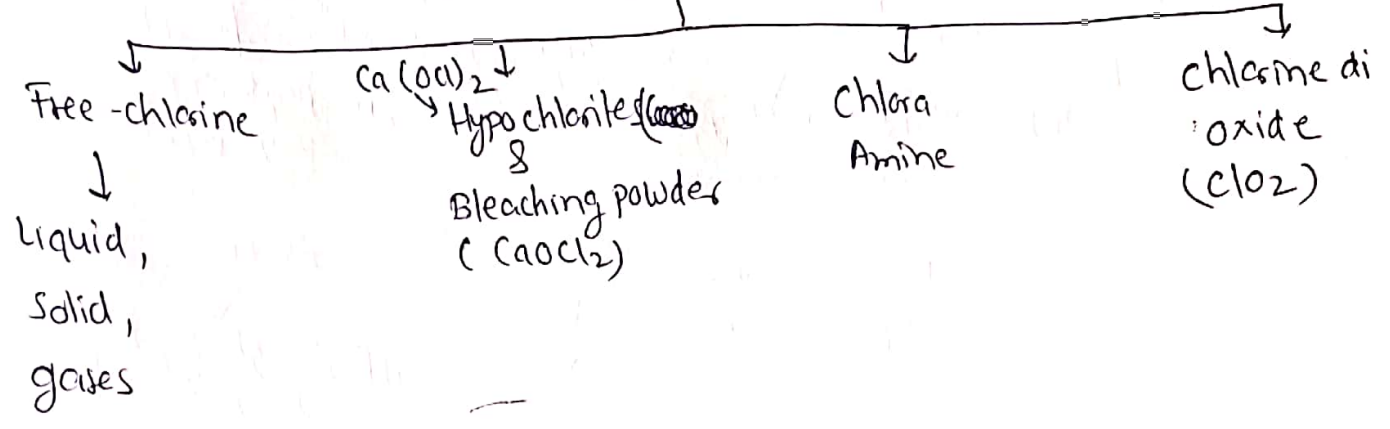 Free-chlorine
Liquid,
Solid,
gases
Ca(OCl)2
Hypochlorite
&
Bleaching powder
(CaOCl2)
Chlora
Amine
Chlorine di
oxide
(ClO2)